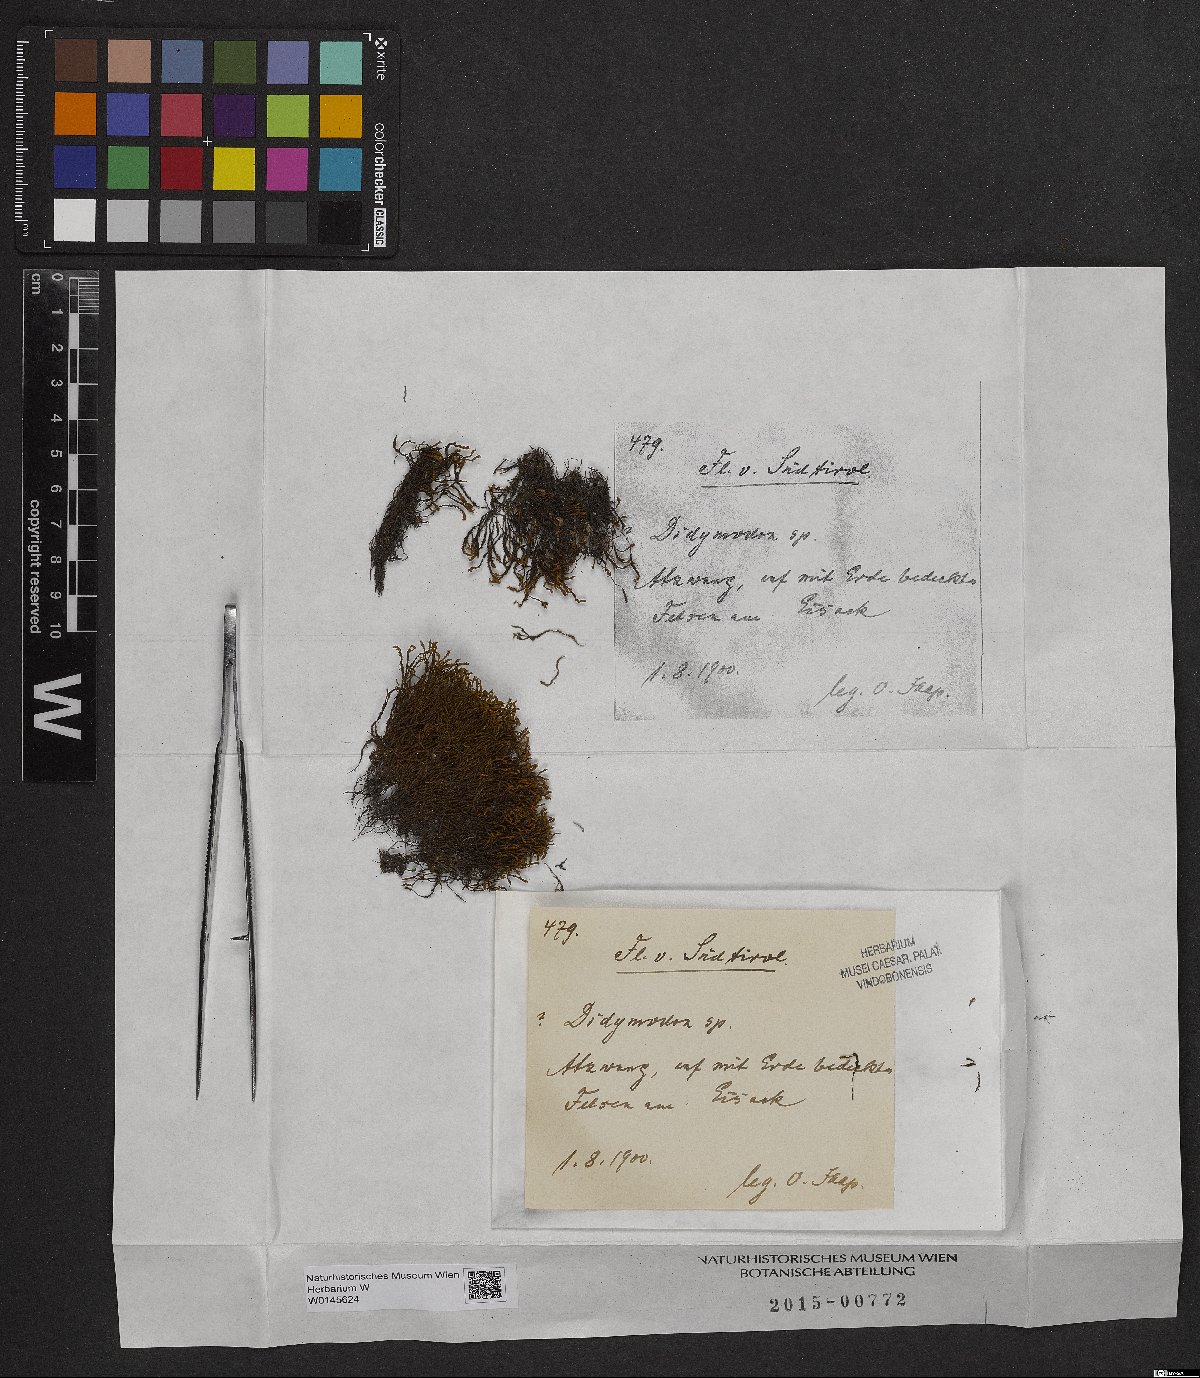 xrite
colorchecker CLASSIC
cm
0 1 2 3 4 5 6 7 8 9 10
copyright reserved
W
479.
Fl. v. Südtirol.
? Didymodon sp.
Atzwang, auf mit Erde bedeckten
Felsen am Eisack
1. 8. 1900.
leg. O. Jaap.
479.
Fl. v. Südtirol.
? Didymodon sp.
Atzwang, auf mit Erde bedeckten
Felsen am Eisack
1. 8. 1900.
leg. O. Jaap.
HERBARIUM
MUSEI CAESAR. PALAT.
VINDOBONENSIS
NATURHISTORISCHES MUSEUM WIEN
BOTANISCHE ABTEILUNG
2015-00772
Naturhistorisches Museum Wien
Herbarium W
W0145624